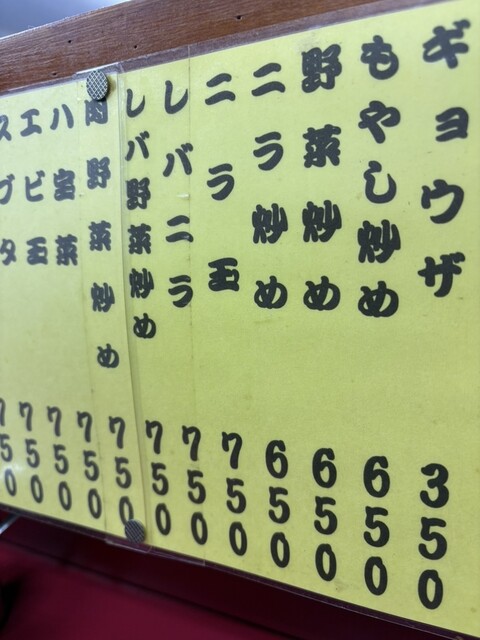 ギョウザ 350
もやし炒め 650
野菜炒め 650
ニラ炒め 650
ニラ玉 750
レバニラ 750
レバ野菜炒め 750
肉野菜炒め 750
八宝菜 750
エビ玉 750
スブタ 750
750